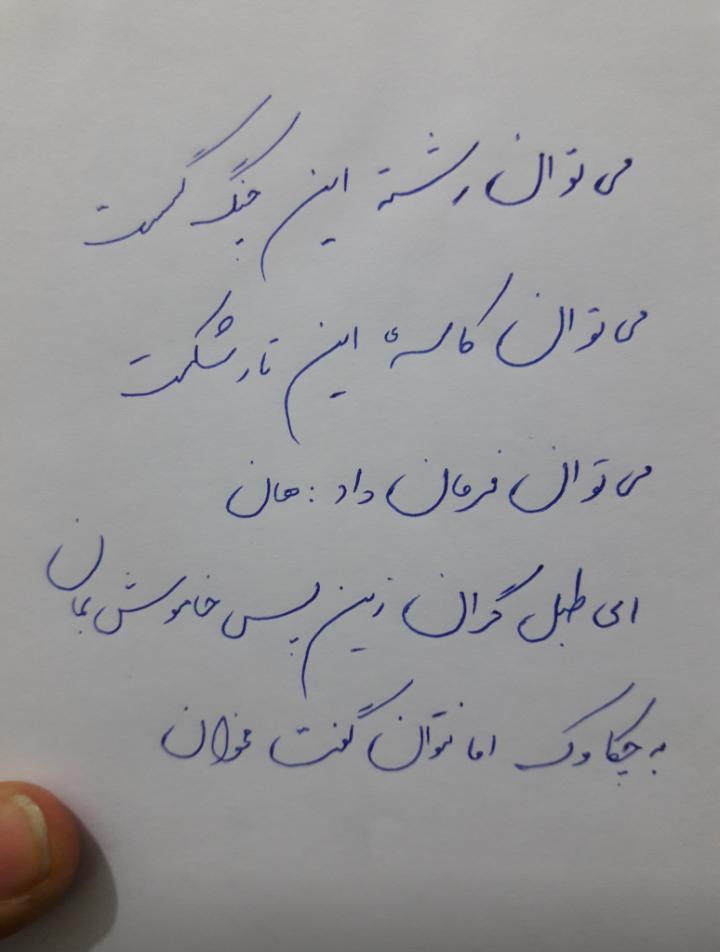 می توان رشته این چنگ گسست
می توان کاسهٔ این تار شکست
می توان فرمان داد : هان
ای طبل گران زین پس خاموش بمان
به چکاوک اما نتوان گفت مخوان